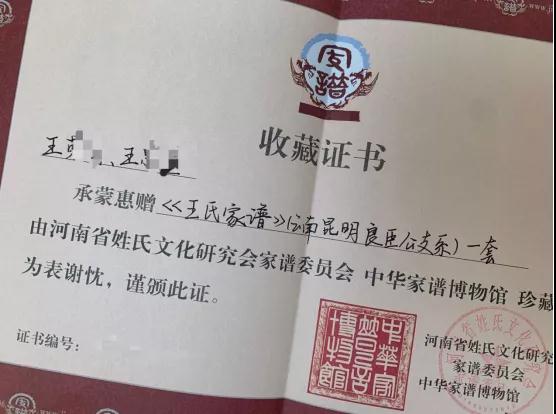 家譜
收藏证书
王 、王
承蒙惠赠《王氏家谱》(云南昆明良臣公支系)一套
由河南省姓氏文化研究会家谱委员会 中华家谱博物馆 珍藏
为表谢忱，谨颁此证。
证书编号:
中华家谱博物馆
河南省姓氏文化研究
家谱委员会
中华家谱博物馆